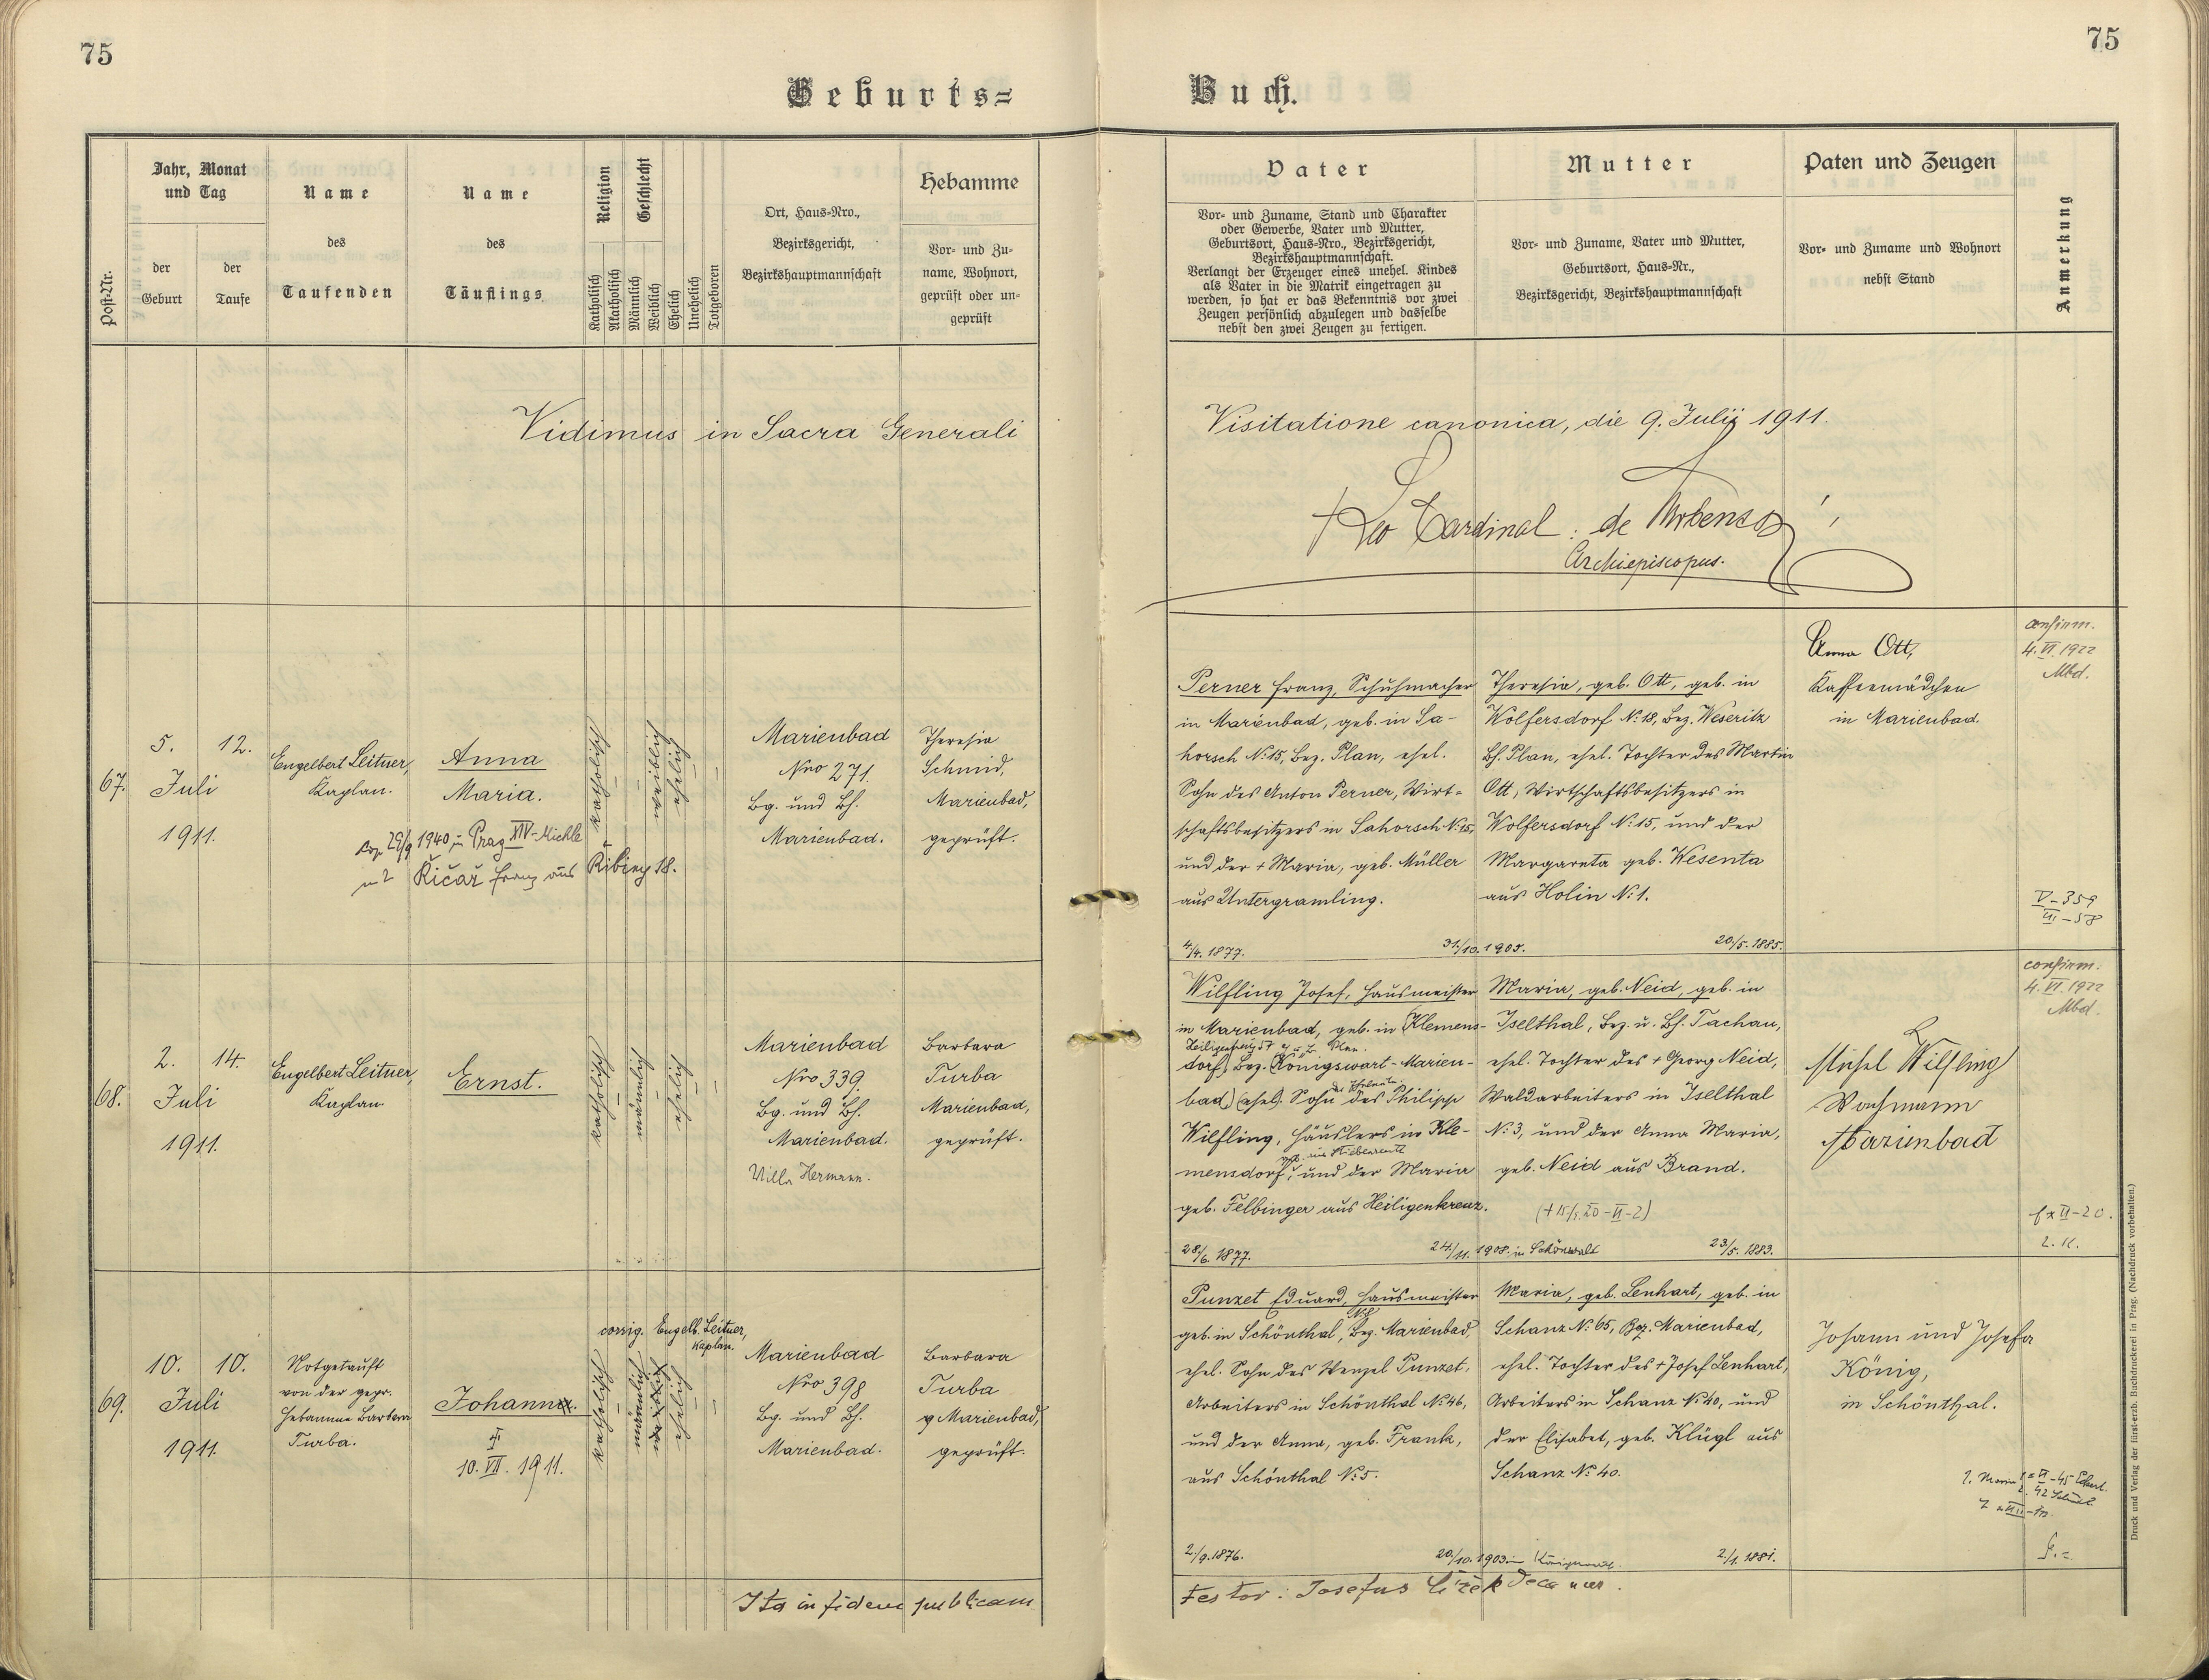 75
75
Geburts=
Buch.
Post-Nr.
Jahr, Monat
und Tag
der
Geburt
der
Taufe
Name
des
Taufenden
Name
des
Täuflings
Religion
Katholisch
Akatholisch
Geschlecht
Männlich
Weiblich
Ehelich
Unehelich
Totgeboren
Ort, Haus-Nro.,
Bezirksgericht,
Bezirkshauptmannschaft
Hebamme
Vor- und Zu-
name, Wohnort,
geprüft oder un-
geprüft
Vater
Vor- und Zuname, Stand und Charakter
oder Gewerbe, Vater und Mutter,
Geburtsort, Haus-Nro., Bezirksgericht,
Bezirkshauptmannschaft.
Verlangt der Erzeuger eines unehel. Kindes
als Vater in die Matrik eingetragen zu
werden, so hat er das Bekenntnis vor zwei
Zeugen persönlich abzulegen und dasselbe
nebst den zwei Zeugen zu fertigen.
Mutter
Vor- und Zuname, Vater und Mutter,
Geburtsort, Haus-Nr.,
Bezirksgericht, Bezirkshauptmannschaft
Paten und Zeugen
Vor- und Zuname und Wohnort
nebst Stand
Anmerkung
Vidimus in Sacra Generali
Visitatione canonica, die 9. Julij 1911.
† Leo Cardinal: de Skrbensky
Archiepiscopus.
67.
5. 12.
Juli
1911.
Engelbert Leitner,
Kaplan.
Anna
Maria.
cop. 29/9 1940 in Prag XIV-Michle
Řičař Franz aus Řibiny 18.
katholisch
weiblich
ehelich
Marienbad
Nro 271.
Bg. und Bh.
Marienbad.
Theresia
Schmid,
Marienbad,
geprüft.
Perner Franz, Schuhmacher
in Marienbad, geb. in Sa-
horsch N: 15, Bez. Plan, ehel.
Sohn des Anton Perner, Wirt-
schaftsbesitzers in Sahorsch N: 15,
und der + Maria, geb. Müller
aus Untergramling.
4/4. 1877.
31./10. 1905.
Theresia, geb. Ott, geb. in
Wolfersdorf N: 18, Bez. Weseritz
Bh. Plan, ehel. Tochter des Martin
Ott, Wirtschaftsbesitzers in
Wolfersdorf N: 15, und der
Margareta geb. Wesenta
aus Holin N: 1.
20./5. 1885.
Anna Ott,
Kaffeemädchen
in Marienbad.
confirm.
4. VI. 1922
Mbd.
V-359
III-58
68.
2. 14.
Juli
1911.
Engelbert Leitner,
Kaplan.
Ernst.
katholisch
männlich
ehelich
Marienbad
Nro 339.
Bg. und Bh.
Marienbad.
Villa Hermann.
Barbara
Turba
Marienbad,
geprüft.
Wilfling Josef, Hausmeister
in Marienbad, geb. in (Klemens-
dorf, Bez. Königswart-Marien-
bad,) (ehel. Sohn des Philipp
Wilfling, Häuslers in Kle-
mensdorf, und der Maria
geb. Felbinger aus Heiligenkreuz.
28./6. 1877.
24./11. 1908. in Schönwald
Maria, geb. Neid, geb. in
Iselthal, Bez. u. Bh. Tachau,
ehel. Tochter des + Georg Neid,
Waldarbeiters in Iselthal
N: 3, und der Anna Maria,
geb. Neid aus Brand.
23./5. 1883.
Michel Wilfling
Wachmann
Marienbad
confirm.
4. VI. 1922
Mbd.
69.
10. 10.
Juli
1911.
Notgetauft
von der gepr.
Hebamme Barbara
Turba.
Johann.
†
10. VII. 1911.
corrig. Engelb. Leitner,
Kaplan.
katholisch
männlich
weiblich
ehelich
Marienbad
Nro 398
Bg. und Bh.
Marienbad.
Barbara
Turba
Marienbad,
geprüft.
Punzet Eduard, Hausmeister
geb. in Schönthal, Bez. Marienbad,
ehel. Sohn des Wenzel Punzet,
Arbeiters in Schönthal N: 46,
und der Anna, geb. Frank,
aus Schönthal N: 5.
2./9. 1876.
20./10. 1903 in
Maria, geb. Lenhart, geb. in
Schanz N: 65, Bez. Marienbad,
ehel. Tochter des + Josef Lenhart,
Arbeiters in Schanz N: 40, und
der Elisabet, geb. Klügl aus
Schanz N: 40.
2./1. 1881.
Johann und Josefa
König,
in Schönthal.
Ita in fidem publicam
testor: Josefus Čížek Decanus.
Druck und Verlag der fürst-erzb. Buchdruckerei in Prag. (Nachdruck vorbehalten.)